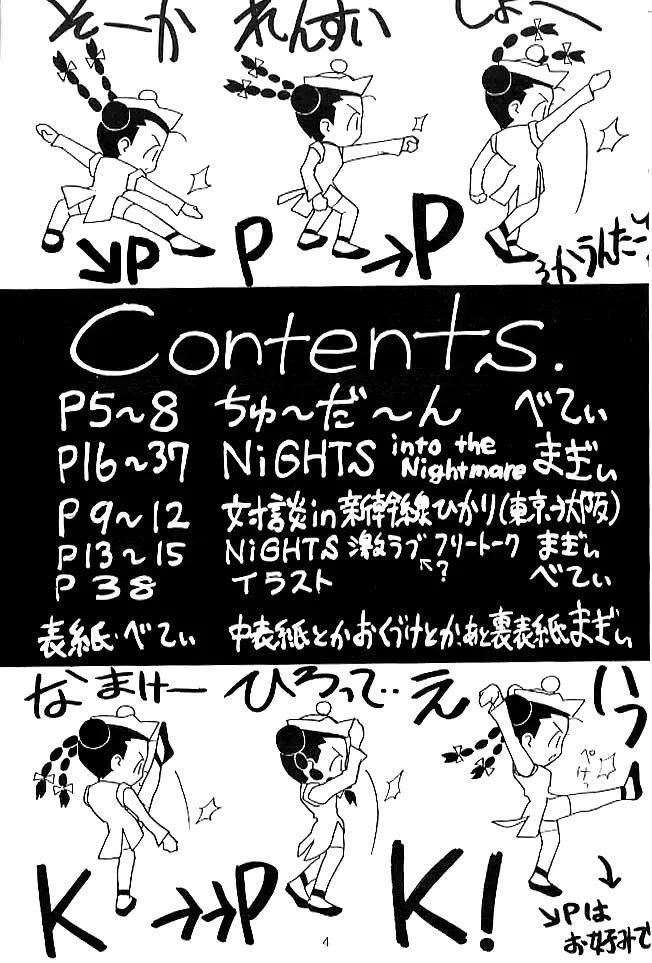 そーか れんすい しょー
↘P P →P
Contents.
P5〜8 ちゅ〜だ〜ん べてぃ
P16〜37 NiGHTS into the Nightmare まぎぃ
P9〜12 対談in新幹線ひかり(東京→大阪)
P13〜15 NiGHTS 激ラブ フリートーク まぎぃ
↖?
P38 イラスト べてぃ
表紙・べてぃ 中表紙とかおくづけとか、あと裏表紙まぎぃ
なまけー ひろって‥ え いっ
ぺけっ
K →→P K!
↓
↘Pは
お好みで
4